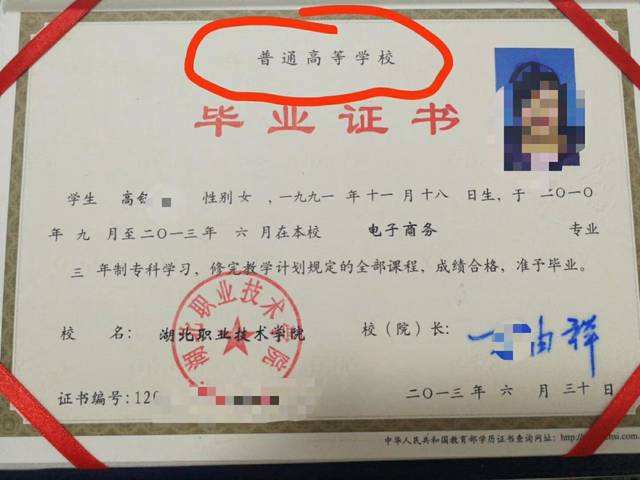 普通高等学校
毕业证书
学生 高 性别 女 ,一九九一 年十一月十八 日生,于 二〇一〇
年 九 月至二〇一三年 六 月在本校 电子商务 专业
三 年制专科学习,修完教学计划规定的全部课程,成绩合格,准予毕业。
校 名: 湖北职业技术学院 校(院)长:
湖北职业技术学院
证书编号:12 二〇一三年 六 月 三十 日
中华人民共和国教育部学历证书查询网址:http://